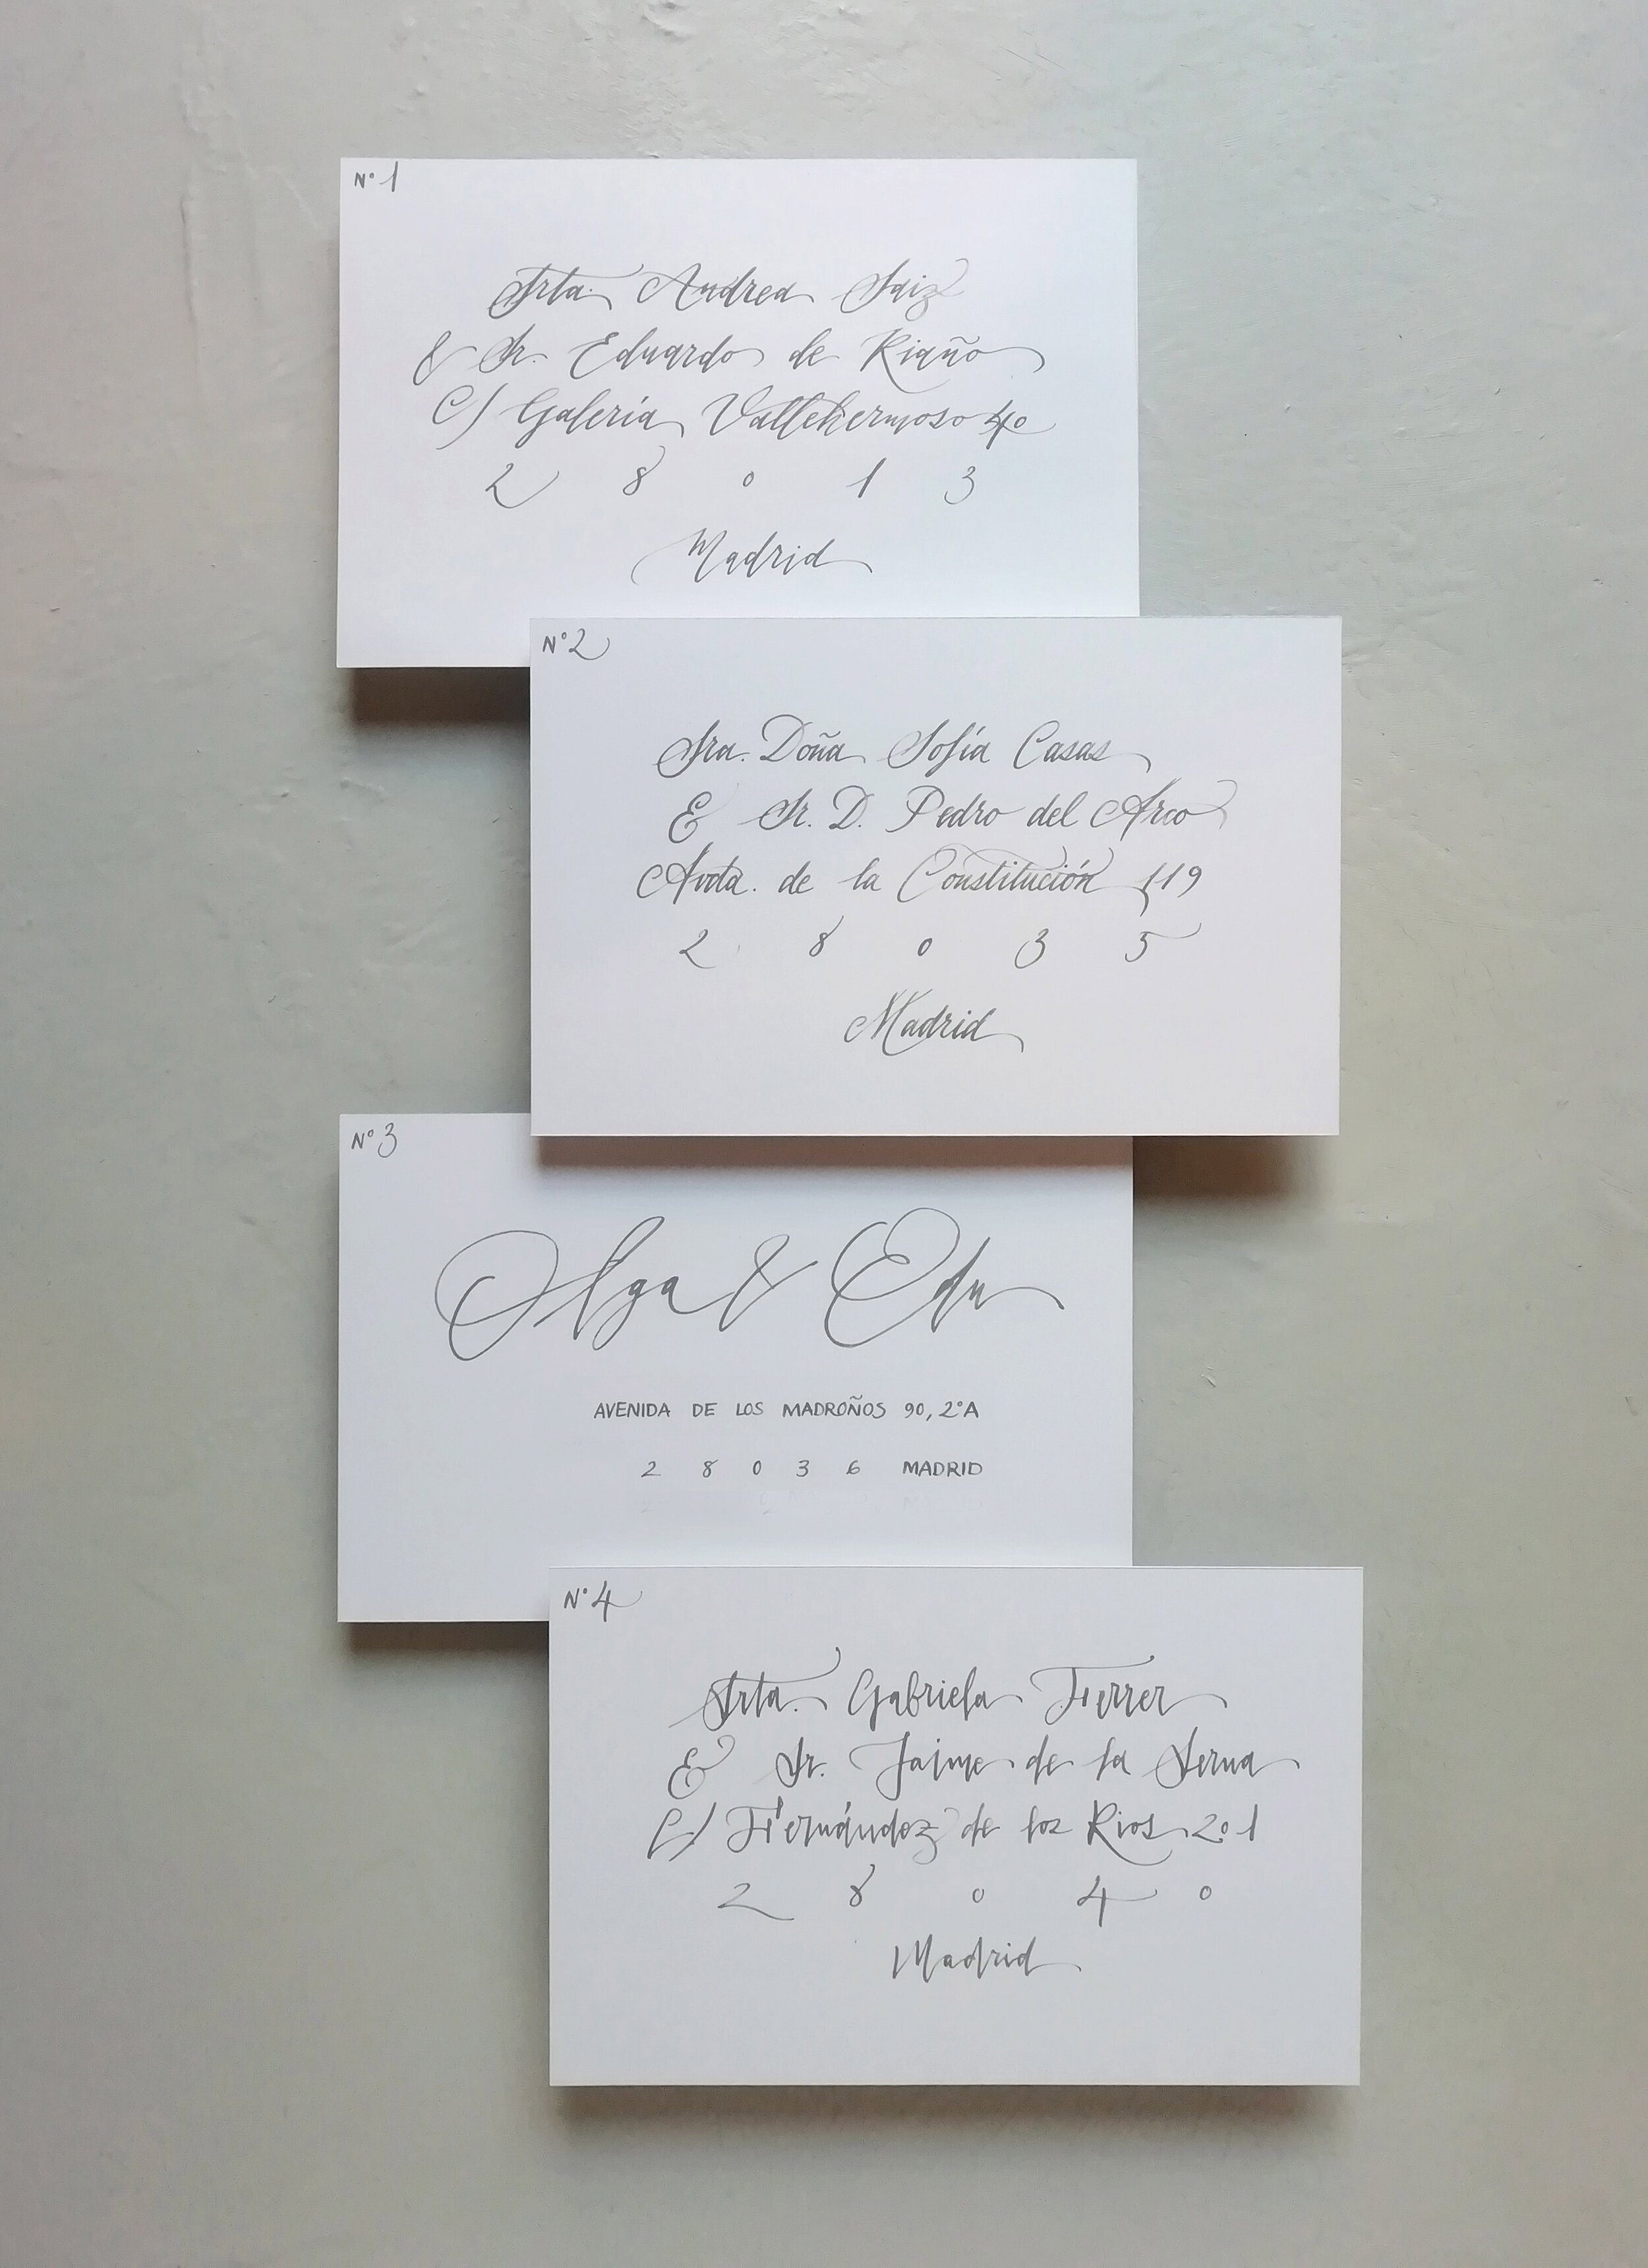 Nº 1
Srta. Andrea Saiz
& Sr. Eduardo de Riaño
C/ Galería Vallehermoso 40
2 8 0 1 3
Madrid
Nº 2
Sra. Doña Sofía Casas
& Sr. D. Pedro del Arco
Avda. de la Constitución 119
2 8 0 3 5
Madrid
Nº 3
Olga & Edu
AVENIDA DE LOS MADROÑOS 90, 2ºA
2 8 0 3 6 MADRID
Nº 4
Srta. Gabriela Ferrer
& Sr. Jaime de la Serna
C/ Fernández de los Rios 201
2 8 0 4 0
Madrid